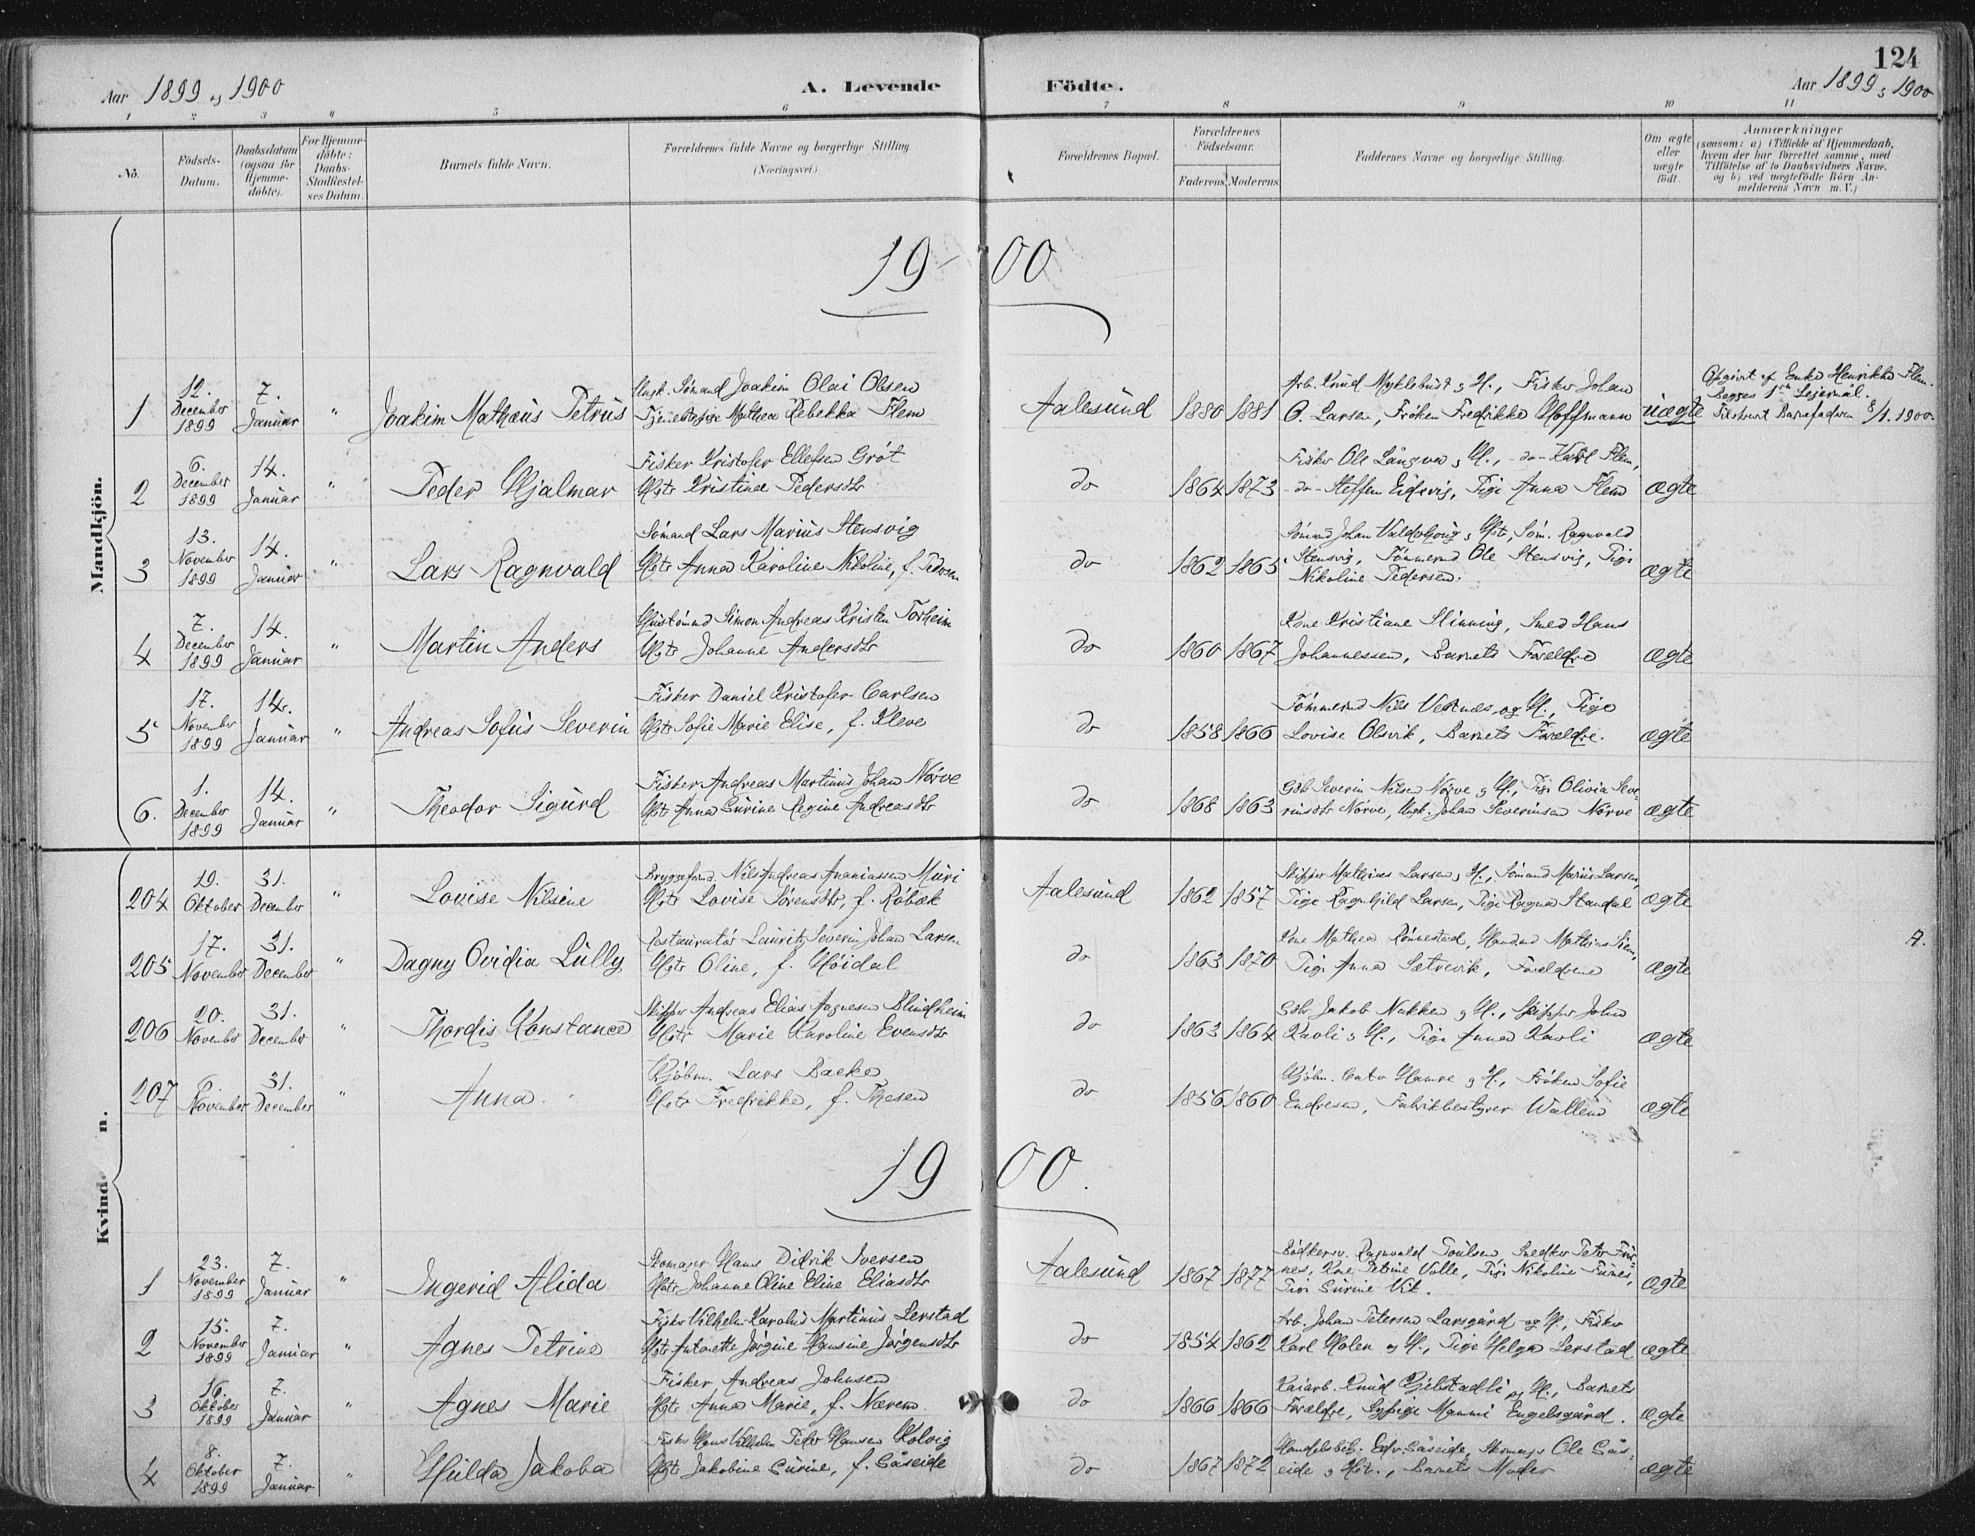 124
Aar 1899 og 1900
A. Levende Födte.
Aar 1899 og 1900
1 2 3 4 5 6 7 8 9 10 11
No.
Födsels-Datum.
Daabsdatum (ogsaa for Hjemme-döbte).
For Hjemme-döbte: Daabs-Stadfæstel-ses Datum.
Barnets fulde Navn.
Forældrenes fulde Navne og borgerlige Stilling (Næringsvei.)
Forældrenes Bopæl.
Forældrenes Födselsaar.
Faderens Moderens
Faddernes Navne og borgerlige Stilling.
Om ægte eller uægte födt.
Anmærkninger
(saasom: a) i Tilfælde af Hjemmedaab, hvem der har forrettet samme, med Tilföielse af to Daabsvidners Navne, og b) ved uægtefödte Börn An-melderens Navn m. V.)
Mandkjön.
1900
1 12. December 1899 7. Januar " Joakim Mathæus Petrus
Ungk. Sömand Joakim Olai Olsen
Tjenestepige Mathea Rebekka Flem
Aalesund 1880 1881
Arb. Knud Myklebust og H., Fisker Johan
O. Larsen, Fröken Fredrikke Hoffmann uægte
Opgivt af Enke Henrikke Flem.
Begges 1ste Leiermål.
Tilskrevet Barnefaderen 8/1. 1900.
2 6. December 1899 14. Januar " Peder Hjalmar
Fisker Kristofer Ellefsen Gröt
Hstr Kristine Pedersdtr
do 1864 1873
Fisker Ole Långva og H., do Karl Flem,
do Steffen Eidsvig, Pige Anna Flem ægte
3 13. November 1899 14. Januar " Lars Ragnvald
Sömand Lars Marius Stensvig
Hstr Anna Karoline Nikoline, f. Pedersen
do 1862 1865
Sömand Johan Valderhoug og Hst., Söm. Ragnvald
Stensvig, Tömmermd Ole Stensvig, Pige
Nikoline Pedersen. ægte
4 7. December 1899 14. Januar " Martin Anders
Simon Andreas Kristen Torheim
Hstr Johanne Andersdtr
do 1860 1867
Kone Kristiane Slinning, Smed Hans
Johannessen, Barnets Foreldre ægte
5 17. November 1899 14. Januar " Andreas Sofus Severin
Fisker Daniel Kristofer Carlsen
Hstr Sofie Marie Elise, f. Kleve
do 1858 1866
Tömmermd Nils Vestnes og H., Pige
Lovise Olsvik, Barnets Foreldre. ægte
6. 1. December 1899 14. Januar " Theodor Sigurd
Fisker Andreas Martinus Johan Nörve
Hstr Anna Gurine Regine Andreasdtr
do 1868 1863
Gdb Severin Nilsen Nörve og H., Pige Olivia Seve-
rinsdtr Nörve, Ungk. Johan Severinsen Nörve ægte
Kvind n.
204 19. Oktober 31. December " Lovise Nilsine
Bryggeformd. Nils Andreas Ananiassen Muri
Hstr Lovise Sörensdtr, f. Röbæk
Aalesund 1862 1857
Skipper Mathias Larsen og H., Sömand Marius Larsen,
Pige Ragnhild Larsen, Pige Ragna Standal ægte
205 17. November 31. December " Dagny Ovidia Lully
Restauratör Lauritz Severin Johan Larsen
Hstr Oline, f. Höidal
do 1863 1870
Kone Mathea Rönnestad, Mathias
Pige Anna Sætrevik, Foreldrene ægte
206 20. November 31. December " Thordis Konstance
Skipper Andreas Elias Aagnesen Blindheim
Hstr Marie Karoline Evensdtr
do 1863 1864
Gdb Jakob Nakken og H., Skipper John
Kavli og H., Pige Anna Kavli ægte
207 November 31. December " Anna
Kjöbm. Lars Bakke
Hstr Fredrikke, f. Thesen
do 1856 1860
Kjöbm. Cato Hamre og H., Fröken Sofie
Endresen, Fabrikbestyrer Wallem ægte
1900.
1 23. November 1899 7. Januar " Ingerid Alida
Skomager Hans Didrik Iversen
Hstr Johanne Oline Eline Eliasdtr
Aalesund 1867 1877
Bödkersv. Ragnvald Poulsen, Peter Fur-
nes, Kone Petrine Valle, Pige Nikoline Furnes,
Pige Gurine Vik. ægte
2 15. November 1899 7. Januar " Agnes Petrine
Fisker Vilhelm Karolus Martinus Lerstad
Hstr Antonette Jörgine Hansine Jörgensdtr
do 1854 1862
Arb. Johan Petersen Larsgård og H., Fisker
Karl Holen og H., Pige Helga Lerstad ægte
3 16. Oktober 1899 7. Januar " Agnes Marie
Fisker Andreas Johnsen
Hstr Anna Marie, f. Nærem
do 1866 1866
Kaiarb. Knud Gjelstadli og H., Barnets
Foreldre, Sypige Mammi Engelsgård. ægte
4 8. Oktober 1899 7. Januar " Hulda Jakoba
Fisker Hans Vilhelm Peder Hansen Kolvig
Hstr Jakobine Gurine, f. Gåseide
do 1867 1872
Handelsbetj. Edv. Gåseide, Skomager Ole Gås-
eide og Hst., Barnets Moder ægte